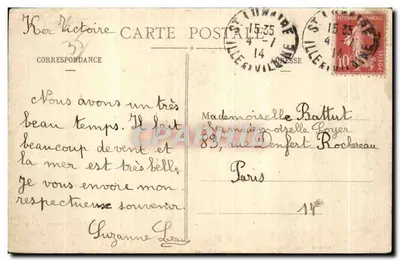 Ker Victoire
CARTE POSTALE
ST LUNAIRE
15:35
4-7
14
ILLE ET VILAINE
ST LUNAIRE
15:35
ILLE ET VILAINE
10
CORRESPONDANCE
Nous avons un très
beau temps. Il fait
beaucoup de vent et
la mer est très belle.
Je vous envoie mon
respectueux souvenir.
Suzanne
Mademoiselle Battut
83, rue Denfert Rochereau
Paris
14e